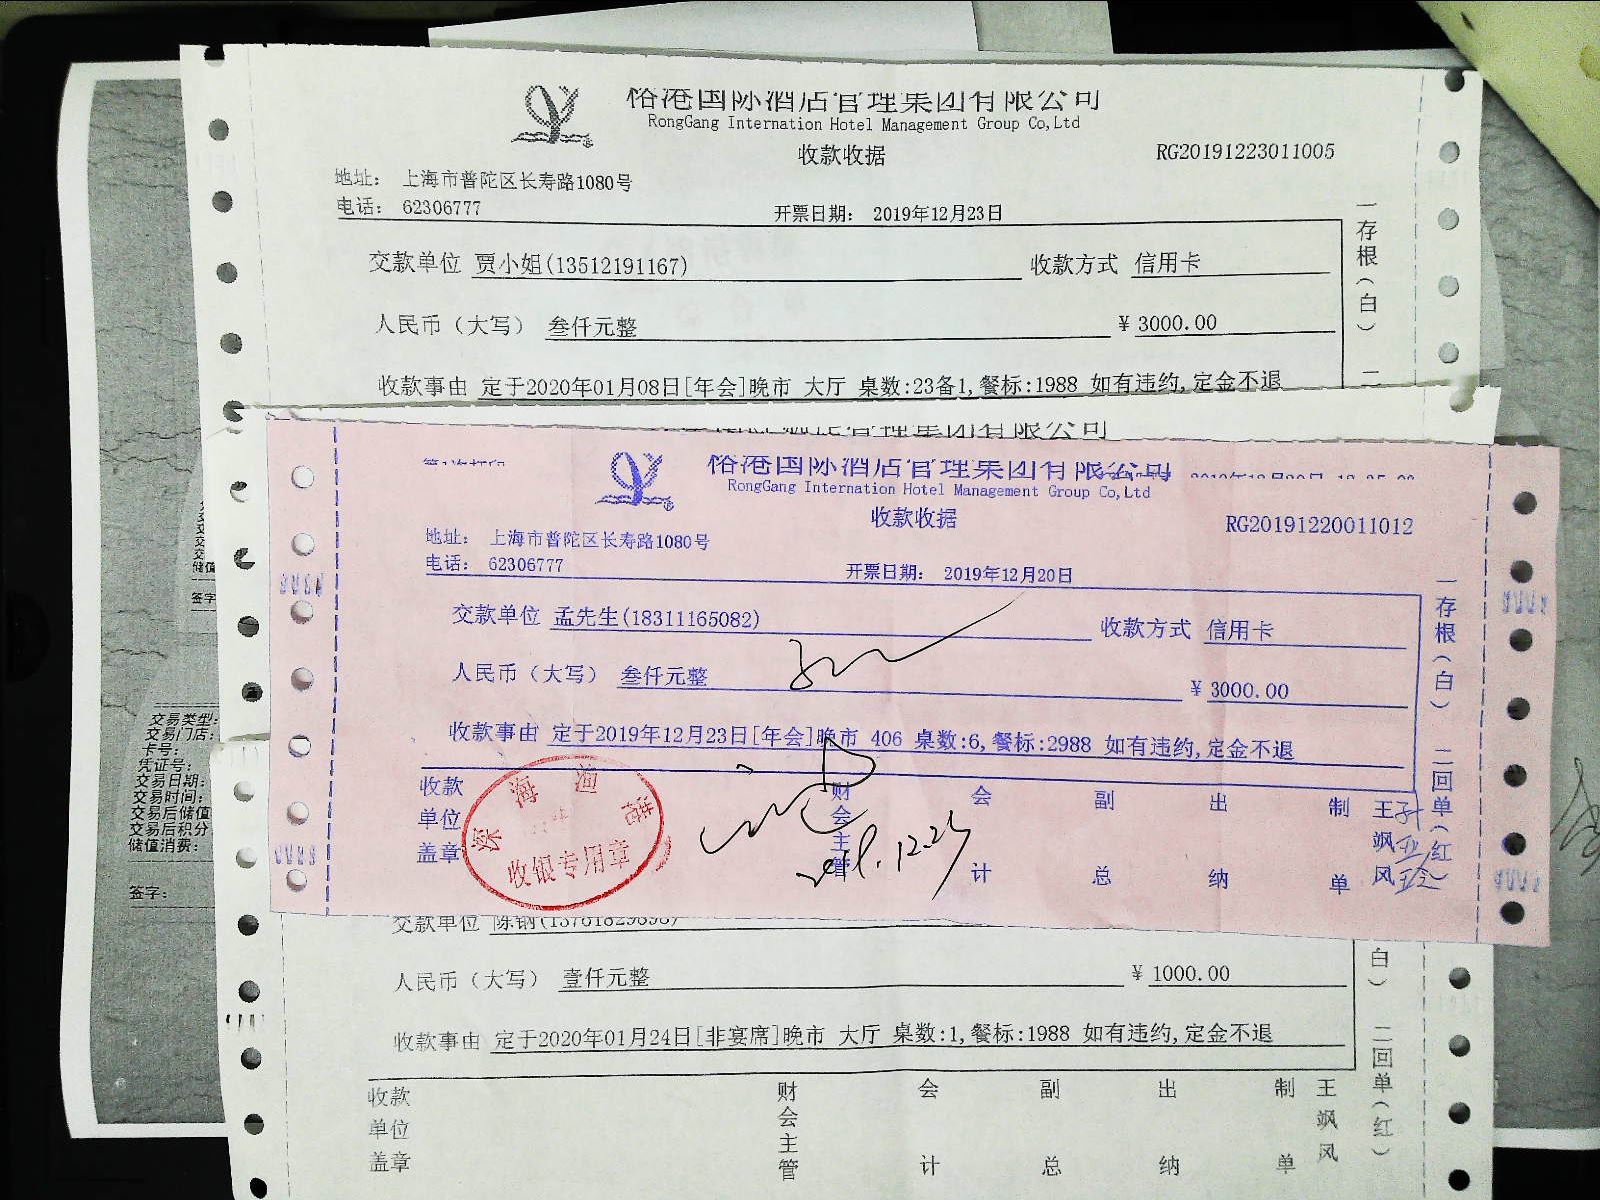 裕港国际酒店管理集团有限公司
RongGang Internation Hotel Management Group Co,Ltd
收款收据
RG20191223011005
地址： 上海市普陀区长寿路1080号
电话： 62306777
开票日期： 2019年12月23日
交款单位 贾小姐(13512191167) 收款方式 信用卡
人民币（大写） 叁仟元整 ¥ 3000.00
收款事由 定于2020年01月08日[年会]晚市 大厅 桌数:23备1,餐标:1988 如有违约,定金不退
一存根（白）二
裕港国际酒店管理集团有限公司
RongGang Internation Hotel Management Group Co,Ltd
收款收据
RG20191220011012
地址： 上海市普陀区长寿路1080号
电话： 62306777
开票日期： 2019年12月20日
交款单位 孟先生(18311165082) 收款方式 信用卡
人民币（大写） 叁仟元整 ¥ 3000.00
收款事由 定于2019年12月23日[年会]晚市 406 桌数:6,餐标:2988 如有违约,定金不退
一存根（白）二回单（红
收款单位盖章 财会主管 会计 副总 出纳 制单 王飒风
收银专用章
2019.12.23
交款单位 陈钢(13761829898)
人民币（大写） 壹仟元整 ¥ 1000.00
收款事由 定于2020年01月24日[非宴席]晚市 大厅 桌数:1,餐标:1988 如有违约,定金不退
白）二回单（红）
收款单位盖章 财会主管 会计 副总 出纳 制单 王飒风
交易类型:
交易门店:
卡号:
凭证号:
交易日期:
交易时间:
交易后储值
交易后积分
储值消费:
签字: